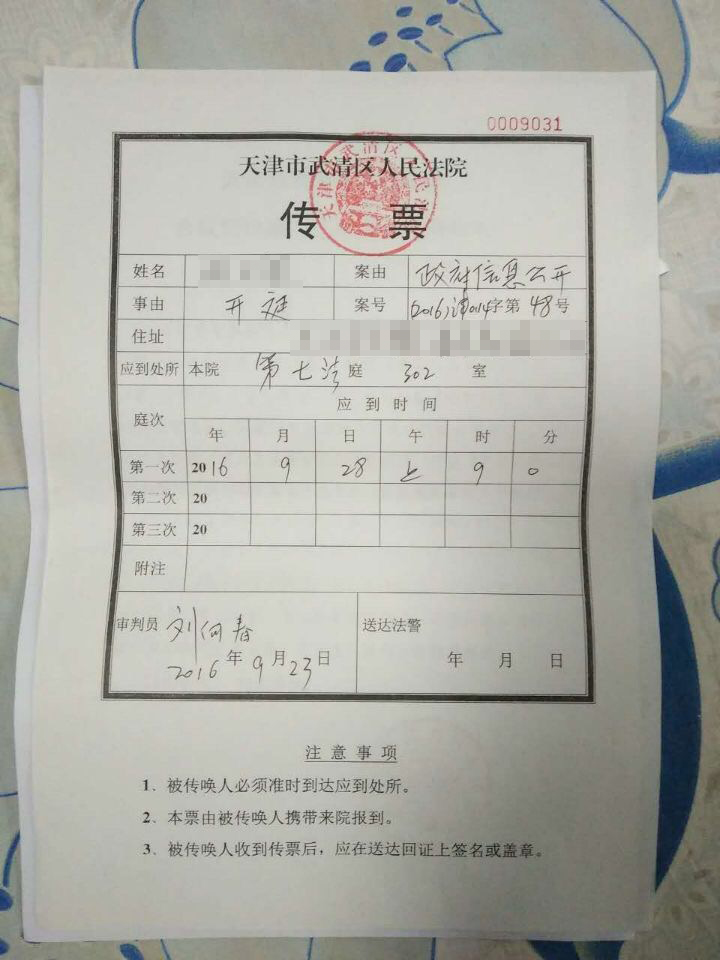 0009031
天津市武清区人民法院
传 票
姓名 案由 政府信息公开
事由 开庭 案号 (2016)津0114字第48号
住址
应到处所 本院 第七法庭 302 室
庭次 应到时间
年 月 日 午 时 分
第一次 2016 9 28 上 9 0
第二次 20
第三次 20
附注
审判员 刘向春 送达法警
2016年9月23日 年 月 日
注意事项
1、被传唤人必须准时到达应到处所。
2、本票由被传唤人携带来院报到。
3、被传唤人收到传票后，应在送达回证上签名或盖章。